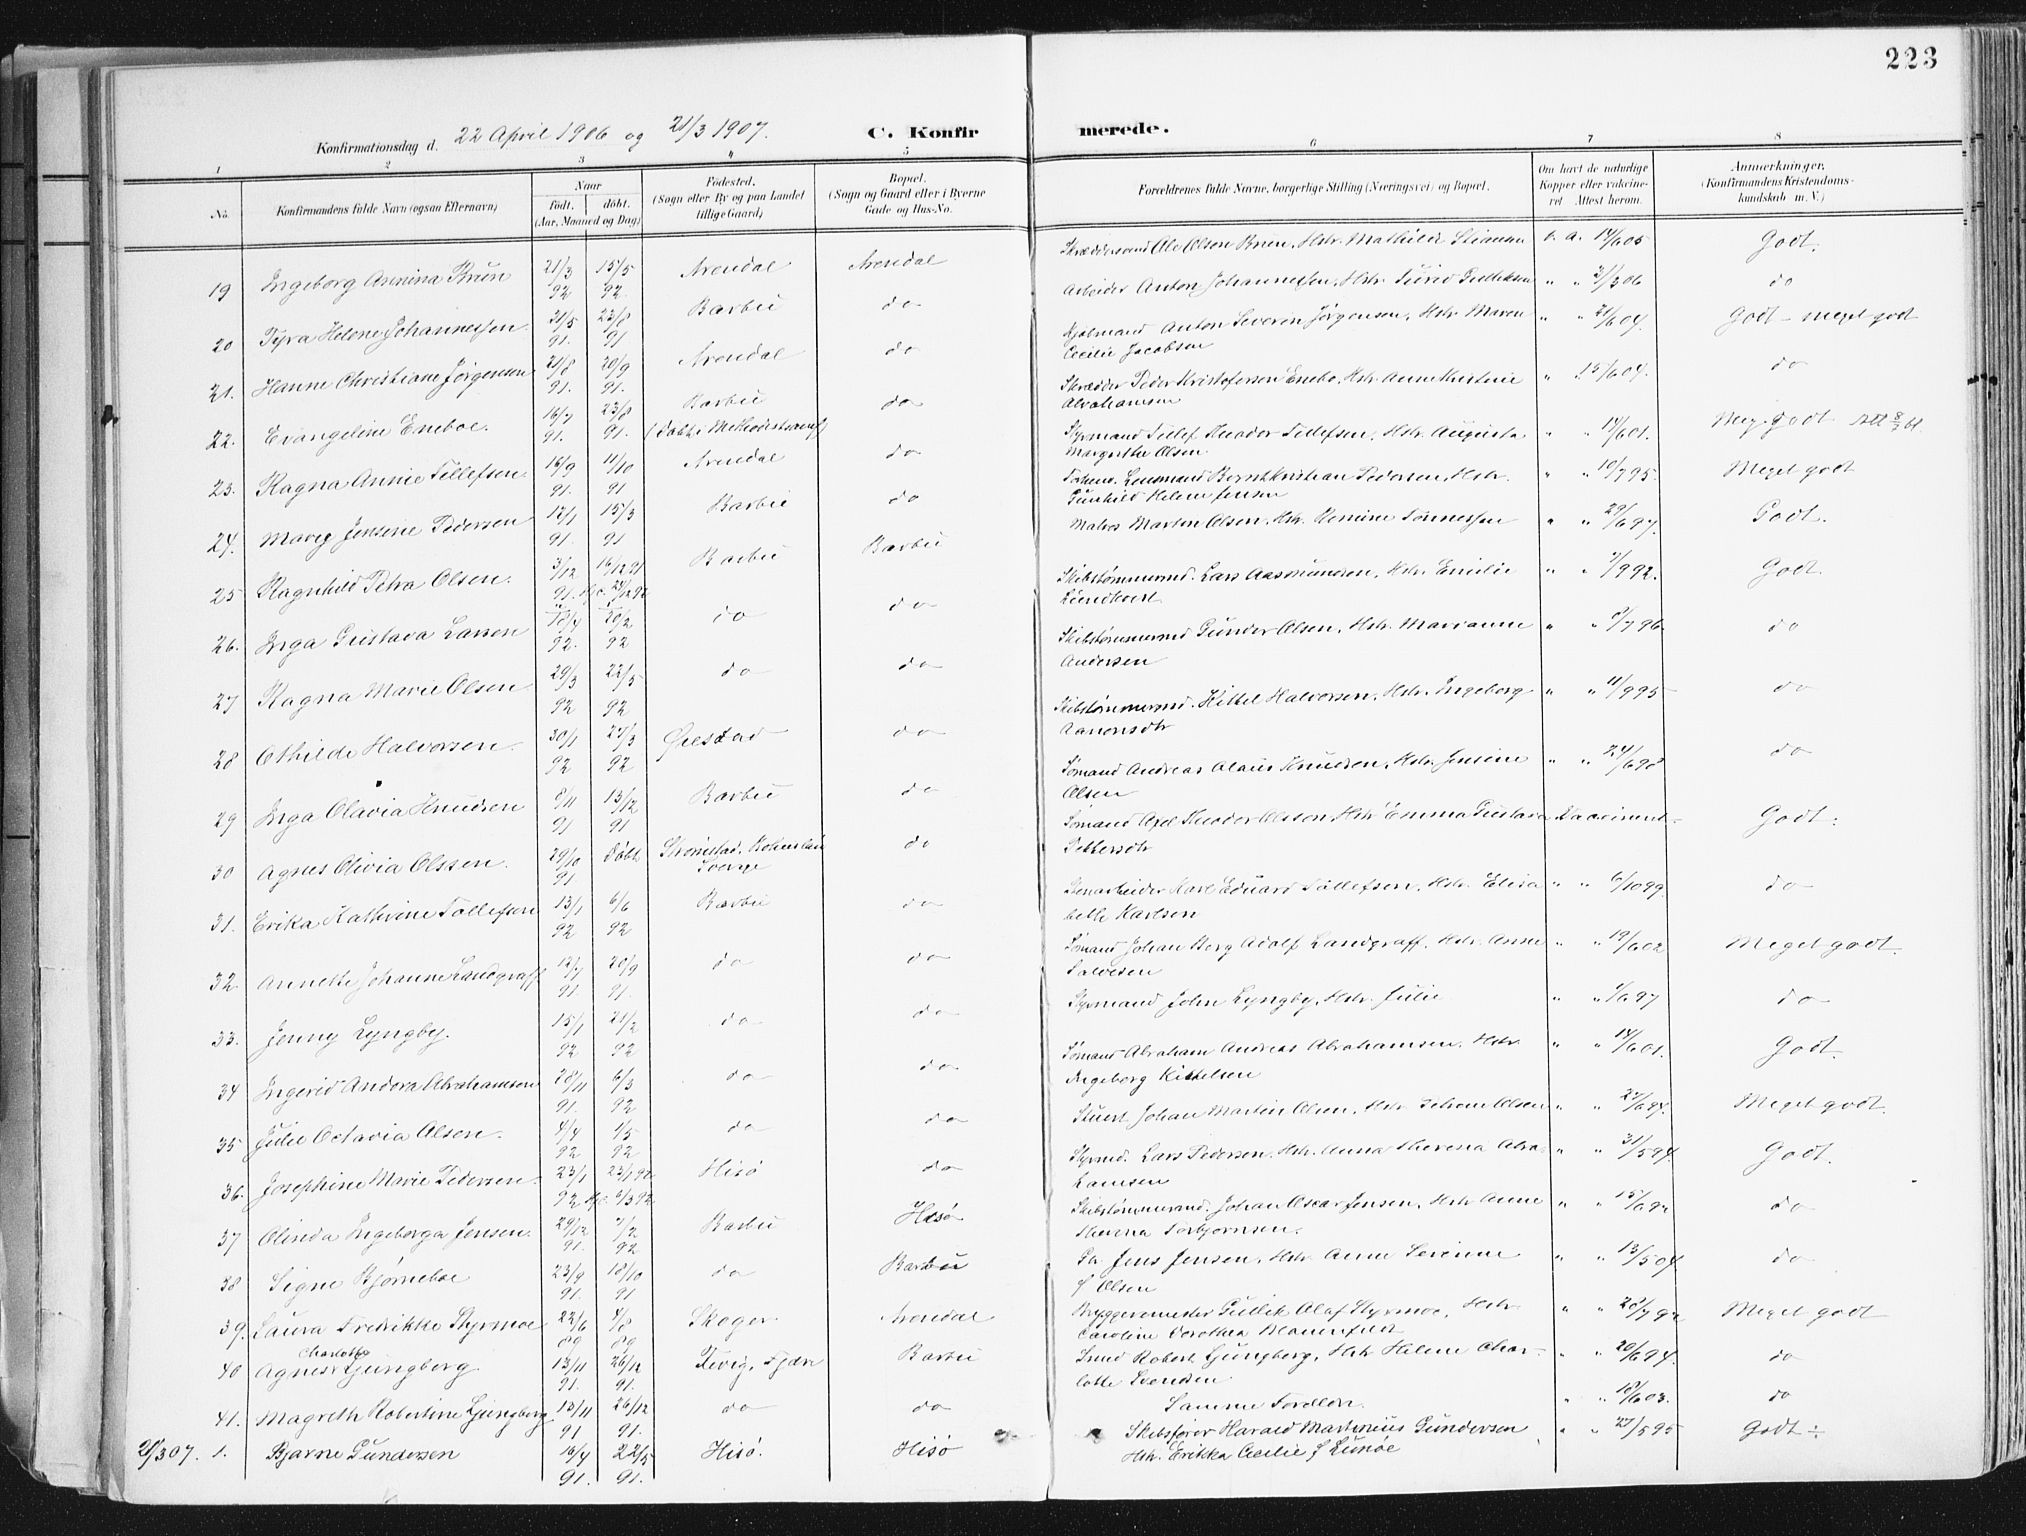 223
Konfirmationsdag d. 22 April 1906 og 21/3 1907. C. Konfirmerede.
1 2 3 4 5 6 7 8
No. Konfirmandens fulde Navn (ogsaa Efternavn) Naar født. døbt. (Aar, Maaned og Dag) Fødested. (Sogn eller By og paa Landet tillige Gaard) Bopæl. (Sogn og Gaard eller i Byerne Gade og Hus-No. Forældrenes fulde Navne, borgerlige Stilling (Næringsvei) og Bopæl. Om havt de naturlige Kopper eller vaccineret. Attest herom. Anmærkninger. (Konfirmandens Kristendomskundskab m. V.)
19 Ingeborg Annina Brun 21/3 92 15/5 92. Arendal Arendal Skræddersvend Ole Olsen Brun, Hstr. Mathilde Stiansen v. a. 14/6 05 Godt.
20 Tyra Helene Johannessen 31/5 91. 23/8 91 Barbu do Arbeider Anton Johannessen, Hstr. Turid Tellefsen " " 31/3 06 do
21. Hanne Christiane Jørgensen 21/8 91. 20/9 91. Arendal do Anton Severin Jørgensen, Hstr. Maren Cecilie Jacobsen " " 21/6 04. Godt - meget godt
22. Evangeline Eneboe. 16/7 91. 23/8 91. Barbu (Døbt i Methodistsamf) do Skrædder Peder Kristofersen Enebo, Hstr. Anne Kristine Abrahamsen " " 15/6 04. do
23. Ragna Annie Tellefsen. 16/9 91. 11/10 91 Arendal do Styrmand Tellef Theodor Tellefsen, Hstr. Augusta Margrethe Olsen " " 14/6 01. Meg. godt
24. Mary Jensene Pedersen 12/1 91. 15/3 91 Barbu do Berntkristian Pedersen, Hstr. Gunhild Helene Jensen " " 10/7 95. Meget godt
25 Ragnhild Petra Olsen. 3/12 91. 16/12 91 Barbu Barbu Matros Martin Olsen, Hstr. Tønnessen " " 29/6 97. Godt.
26. Inga Gustava Larsen 92. 20/2 92 do do Skibstømmermd. Lars Aasmundsen, Hstr. Emilie Lundkvist " " 7/9 92. Godt.
27 Ragna Marie Olsen 29/3 92 22/5 92 do do Skibstømmermd Gunder Olsen, Hstr. Marianne Andersen " " 9/7 96. do
28 Othilde Halvorsen. 30/1 92 27/3 92 Øiestad do Skibstømmermd. Kittel Halvorsen, Hstr. Ingeborg Aanonsdtr " " 11/9 95 do
29 Inga Olavia Knudsen 8/11 91 13/12 91 Barbu do Sømand Andreas Olaus Knudsen, Hstr. Jensine Olsen " " 24/6 98 do
30 Agnes Olivia Olsson. 29/10 91 Døbt Strømstad, Bohuslän Sverge do Sømand Axel Theodor Olsson Hstr Emma Gustava Pettersdtr Vaccineret. Godt.
31. Erika Kathrine Tollefsen 13/1 92 6/6 92 Barbu do Stenarbeider Karl Eduard Tollefsen, Hstr. Elisabeth Karlsen " " 6/10 99. do
32. Annette Johanne Landgraff 12/7 91. 20/9 91. do do Sømand Johan Berg Adolf Landgraff, Hstr. Anne Salvesen " " 19/6 02 Meget godt.
33. Jenny Lyngby. 15/1 92 21/2 92 do do Styrmand John Lyngby, Hstr. Julie " " 1/6 97 do
34 Ingerid Andora Abrahamsen 28/11 91. 6/3 92 do do Sømand Abraham Andreas Abrahamsen, Hstr. Ingeborg Kittelsen " " 14/6 01. Godt.
35 Julie Octavia Olsen. 4/4 92 1/5 92 do do Stuert. Johan Martin Olsen, Hstr. Olsen " " 27/6 94. Meget godt.
36. Josephine Marie Pedersen. 23/1 92 23/1 92 6/3 92. Hisø do Styrmd. Lars Pedersen, Hstr. Anna Theresa " " 31/5 94. Godt.
37 Olinda Ingeborga Jensen. 29/12 91. 7/2 92 Barbu Hisø Skibstømmermd. Johan Oscar Jensen, Hstr Anne Theresa Torbjørnsen. " " 15/6 92 do
38 Signe Bjørneboe 23/9 91. 18/10 91 do Barbu Jens Jensen, Hstr. Anne Severine f Olsen " " 13/5 04. do
39. Laura Fredrikke Styrmoe 22/6 89 4/8 89 Skoger Arendal Bryggeremester Gullik Olaf Styrmoe, Hstr. Caroline Dorothea Blauenfeldt " " 28/7 92 Meget godt
40 Agnes Charlotte Ljungberg 13/11 91. 26/12 91. Fevig, Fjære Barbu Smed Robert Ljungberg, Hstr Helene Charlotte Svendsen " " 20/6 94. do
41. Magreth Robertine Ljungberg 13/11 91 26/12 91. do do Samme Forældre. " " 18/6 03. do
21/3 07. 1. Bjarne Gundersen 16/4 91. 22/5 91. Hisø. Hisø Skibsfører Harald Martinius Gundersen Hstr. Erikka Cecilie f Lunøe " " 27/5 95 Godt